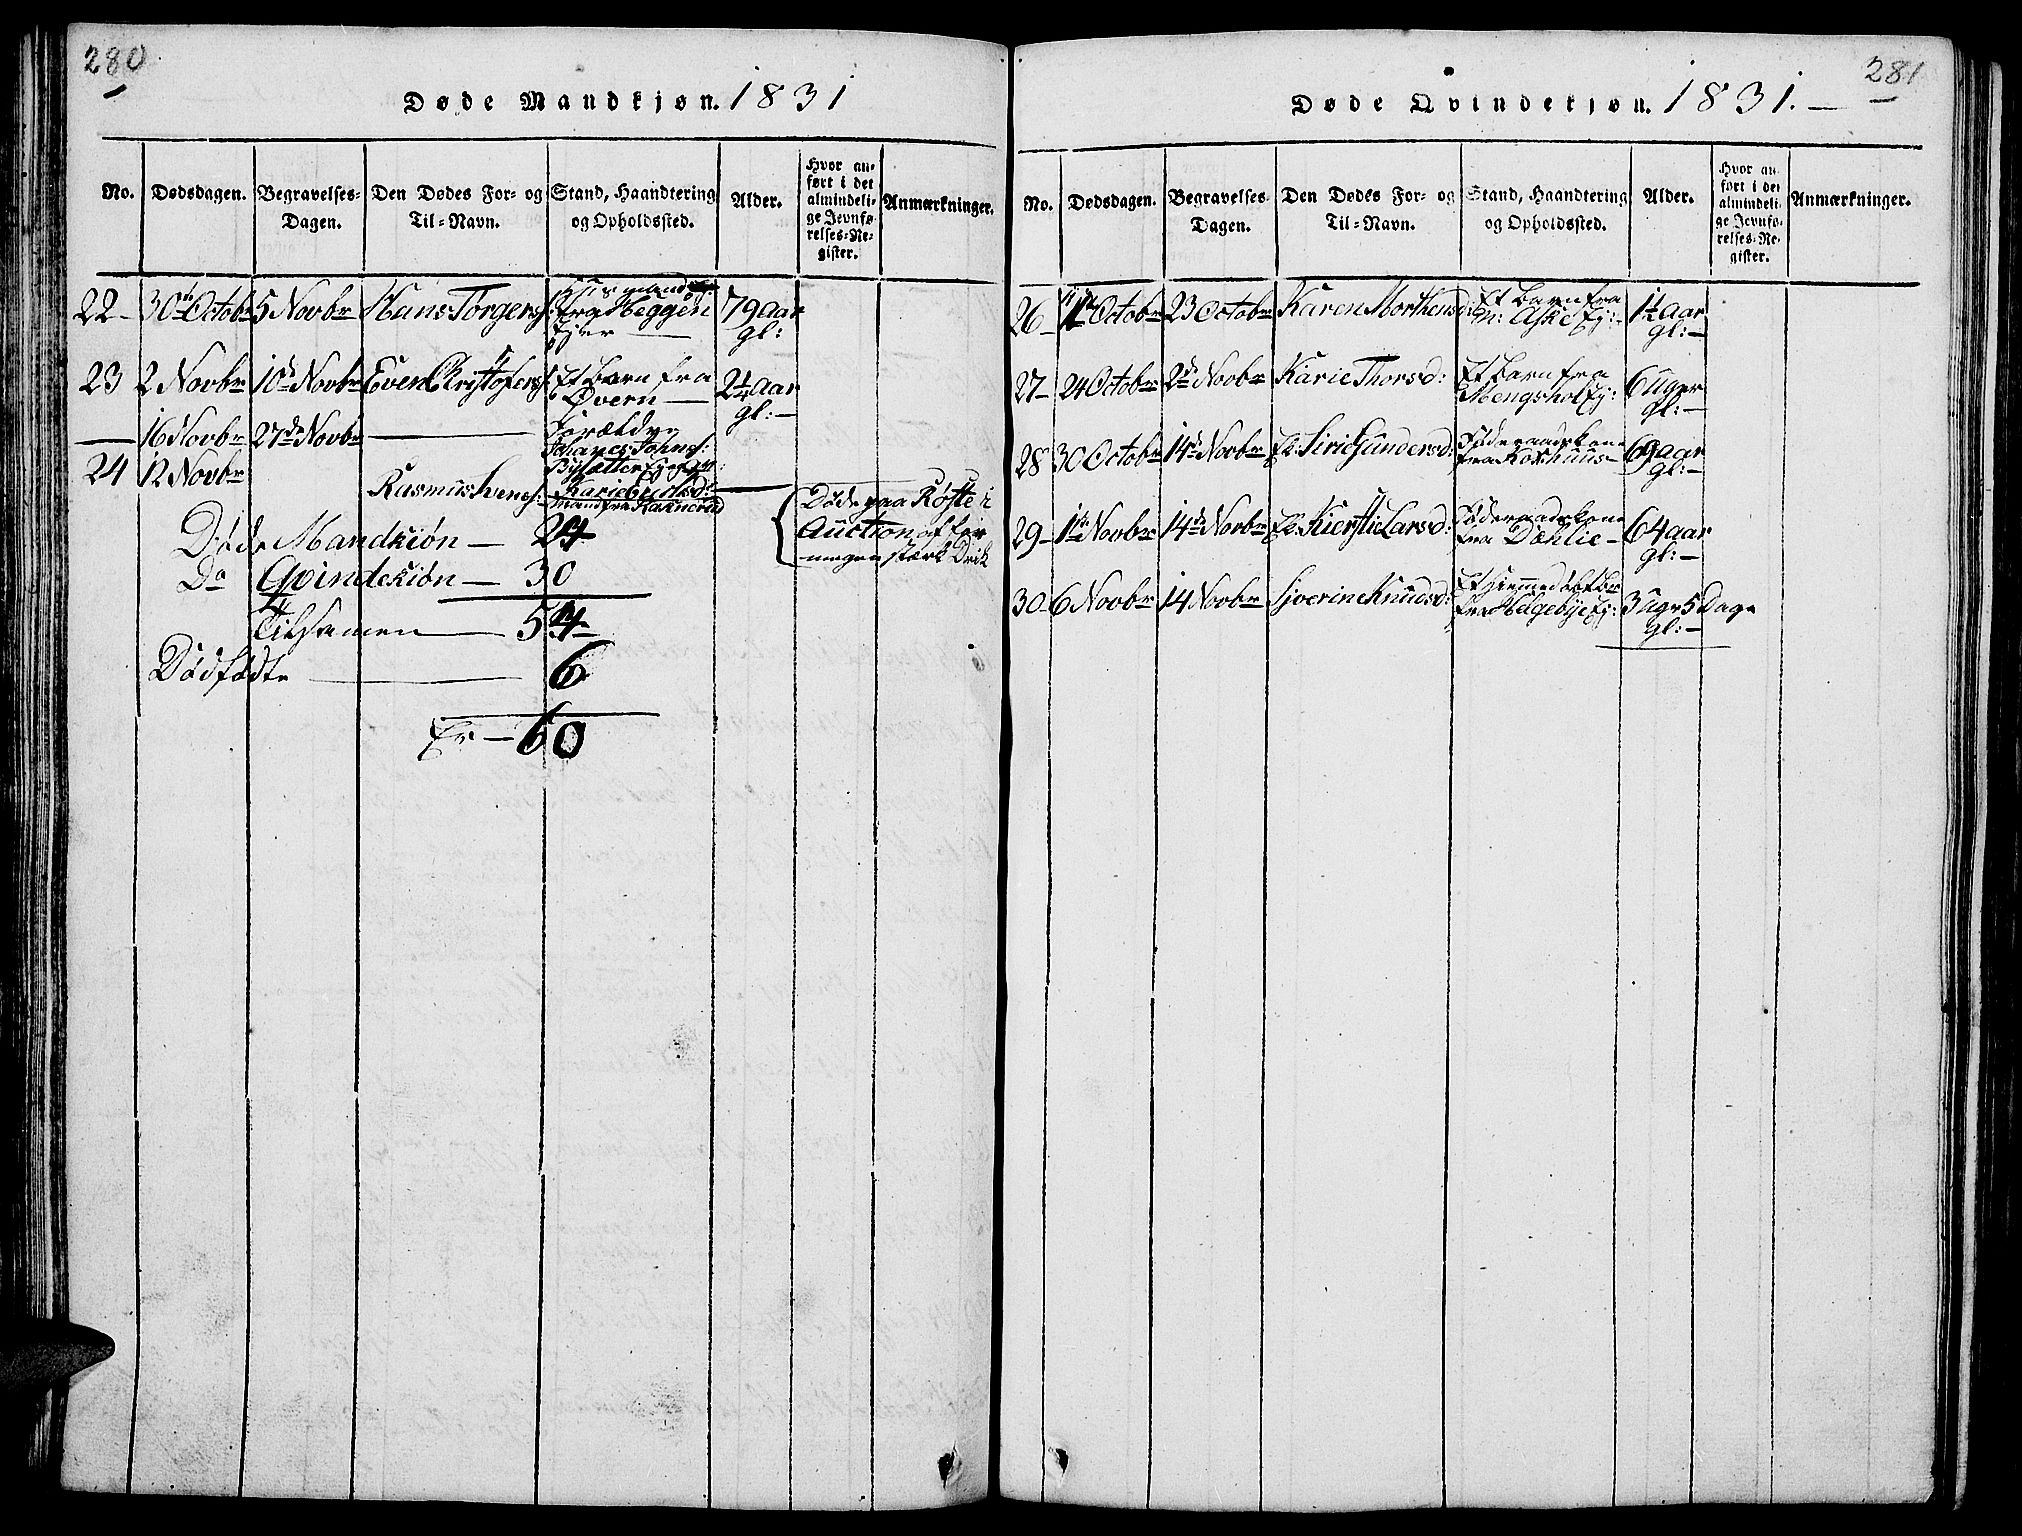 280
Døde Mandkjøn. 1831
No.
Dødsdagen.
Begravelses-
Dagen.
Den Dødes For- og
Til-Navn.
Stand, Haandtering
og Opholdssted.
Alder.
Hvor an-
ført i det
almindeli-
ge Jevnfø-
relses-Re-
gister.
Anmærkninger.
22- 30te Octobr 5 Novbr Hans Torgers: Huusmand fra Heggen Eier 79 aar gl:
23 2 Novbr 10de Novbr Even Christofers: Et barn fra Øvern 2¼ aar gl:-
16 Novbr 27de Novbr Forældre Johanes Johns:
24 12 Novbr Rasmus Svens:
Døde paa Røste i
Auction af for
megen stærk Drik
Døde Mandkiøn - 24
Do Qvindekiøn - 30
Tilsamen - 54
Dødfødte - 6
Er - 60
281
Døde Qvindekjøn. 1831.-
No.
Dødsdagen.
Begravelses-
Dagen.
Den Dødes For- og
Til-Navn.
Stand, Haandtering
og Opholdssted.
Alder.
Hvor an-
ført i det
almindeli-
ge Jevnfø-
relses-Re-
gister.
Anmærkninger.
26- Octobr 23 Octobr Karen Morthensd: Et barn fra n: Aske Ej: 1½ Aar gl:-
27- 24 Octobr 2de Novbr Karie Thorsd: Et barn fra Mengshol Ej: 6 Uger gl:-
28 30 Octobr 14de Novbr Ek: Siri Gundersd: Føderaadskone fra Koxhuus- 69 aar gl:-
29- 1te Novbr 14de Novbr Ek: Kierstie Larsd: Føderaadskone fra Dæhlie- 64 aar gl:-
30- 6 Novbr 14 Novbr Sjverine Knudsd: Et hiemmedøbt br fra Helgebye Ej: 3 Ugr 5 Dage gl:-